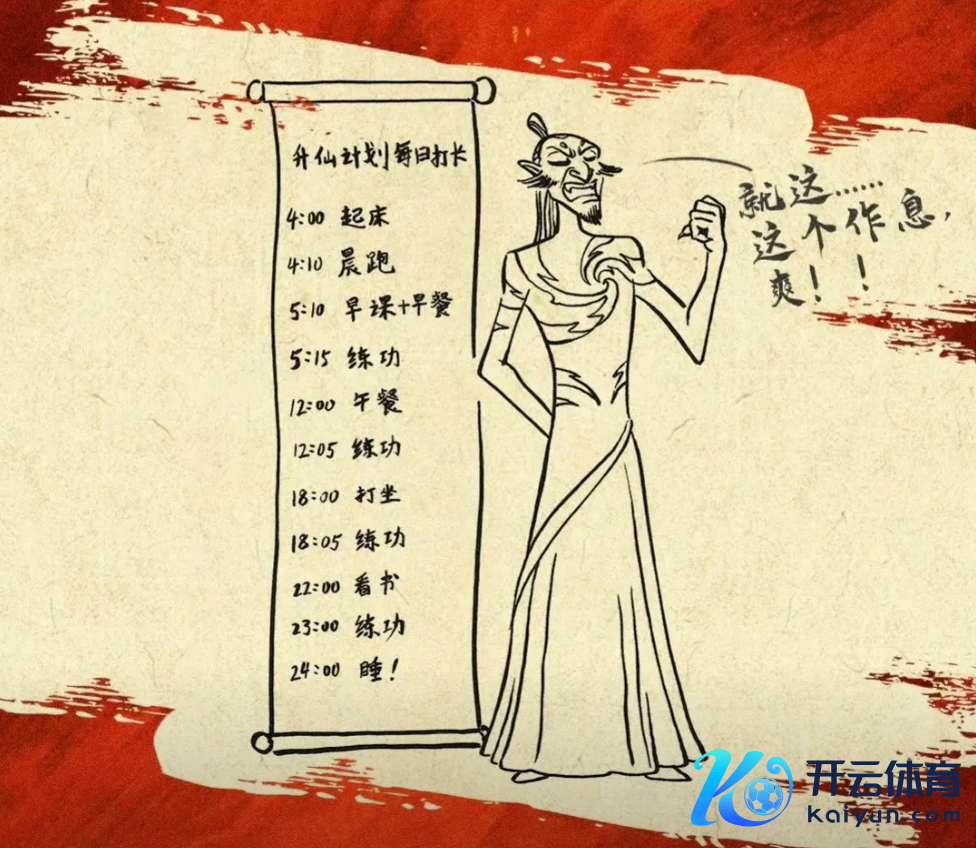 升仙计划每日打长
4:00 起床
4:10 晨跑
5:10 早课+早餐
5:15 练功
12:00 午餐
12:05 练功
18:00 打坐
18:05 练功
22:00 看书
23:00 练功
24:00 睡！
就这……
这个作息，
爽！！
开云体育
Kaiyun.com